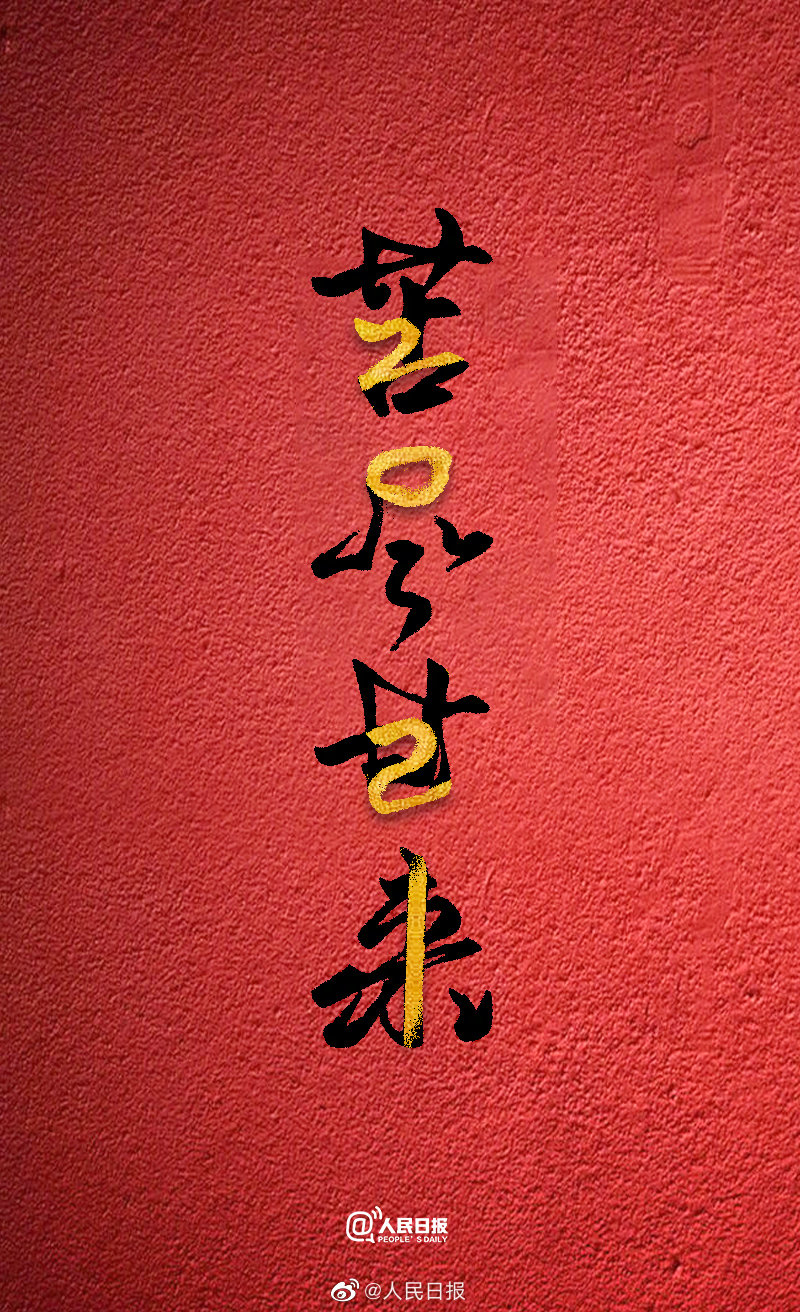 苦尽甘来
@人民日报
PEOPLE'S DAILY
@人民日报